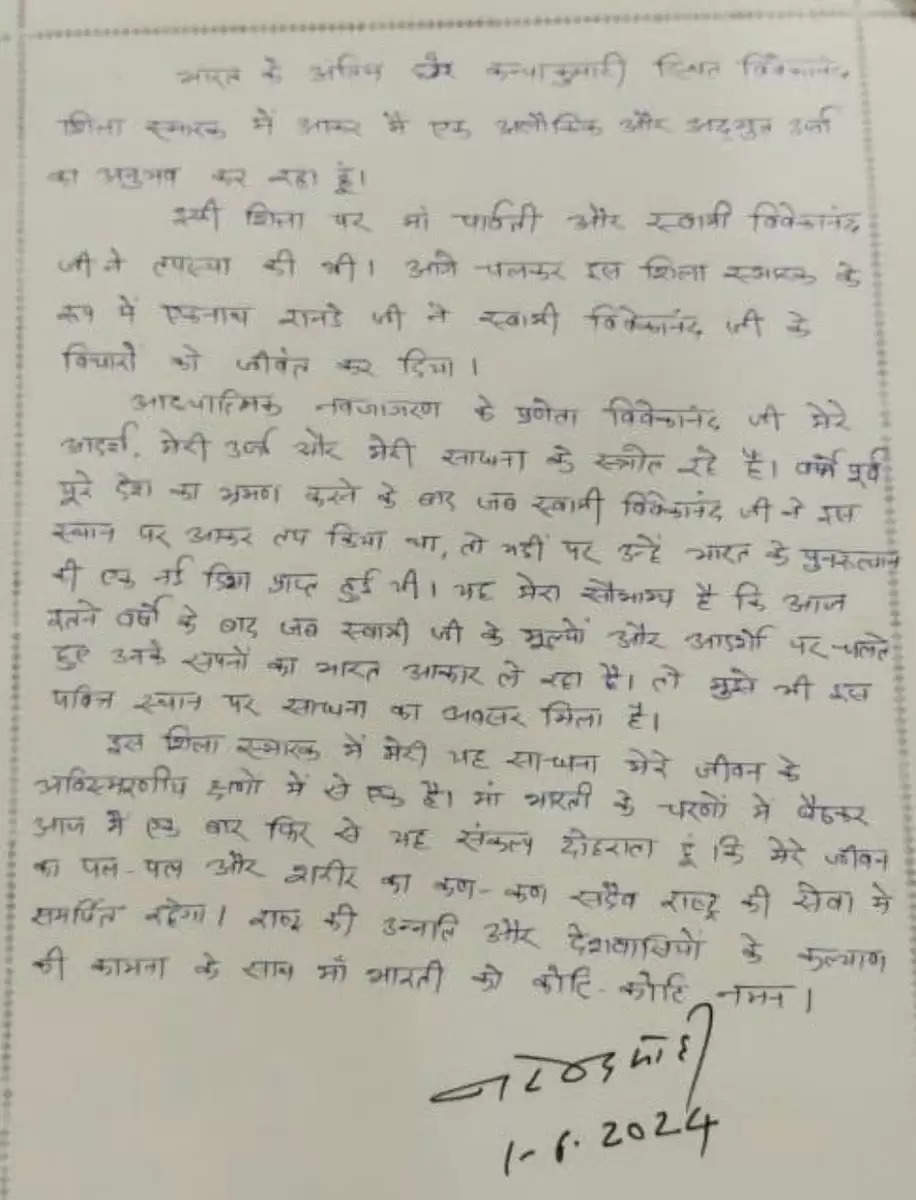 भारत के अंतिम छोर कन्याकुमारी स्थित विवेकानंद
शिला स्मारक में आकर मैं एक अलौकिक और अद्भुत उर्जा
का अनुभव कर रहा हूं।
इसी शिला पर मां पार्वती और स्वामी विवेकानंद
जी ने तपस्या की थी। आगे चलकर इस शिला स्मारक के
रूप में एकनाथ रानडे जी ने स्वामी विवेकानंद जी के
विचारों को जीवंत कर दिया।
आध्यात्मिक नवजागरण के प्रणेता विवेकानंद जी मेरे
आदर्श, मेरी उर्जा और मेरी साधना के स्त्रोत रहे है। वर्षों पूर्व
पूरे देश का भ्रमण करने के बाद जब स्वामी विवेकानंद जी ने इस
स्थान पर आकर तप किया था, तो यहीं पर उन्हें भारत के पुनरुत्थान
की एक नई दिशा प्राप्त हुई थी। यह मेरा सौभाग्य है कि आज
इतने वर्षों के बाद जब स्वामी जी के मूल्यों और आदर्शों पर चलते
हुए उनके सपनों का भारत आकार ले रहा है। तो मुझे भी इस
पवित्र स्थान पर साधना का अवसर मिला है।
इस शिला स्मारक में मेरी यह साधना मेरे जीवन के
अविस्मरणीय क्षणों में से एक है। मां भारती के चरणों में बैठकर
आज मैं एक बार फिर से यह संकल्प दोहराता हूं। कि मेरे जीवन
का पल-पल और शरीर का कण-कण सदैव राष्ट्र की सेवा में
समर्पित रहेगा। राष्ट्र की उन्नति और देशवासियों के कल्याण
की कामना के साथ माँ भारती को कोटि-कोटि नमन।
नरेन्द्र मोदी
1-6.2024